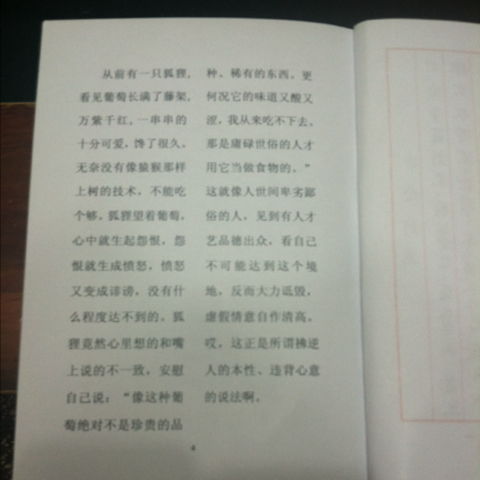 从前有一只狐狸，
看见葡萄长满了藤架，
万紫千红，一串串的
十分可爱，馋了很久。
无奈没有像猿猴那样
上树的技术，不能吃
个够。狐狸望着葡萄，
心中就生起怨恨，怨
恨就生成愤怒，愤怒
又变成诽谤，没有什
么程度达不到的。狐
狸竟然心里想的和嘴
上说的不一致，安慰
自己说：“像这种葡
萄绝对不是珍贵的品
种、稀有的东西。更
何况它的味道又酸又
涩，我从来吃不下去。
那是庸碌世俗的人才
用它当做食物的。”
这就像人世间卑劣鄙
俗的人，见到有人才
艺品德出众，看自己
不可能达到这个境
地，反而大力诋毁，
虚假情意自作清高。
哎，这正是所谓拂逆
人的本性、违背心意
的说法啊。
4